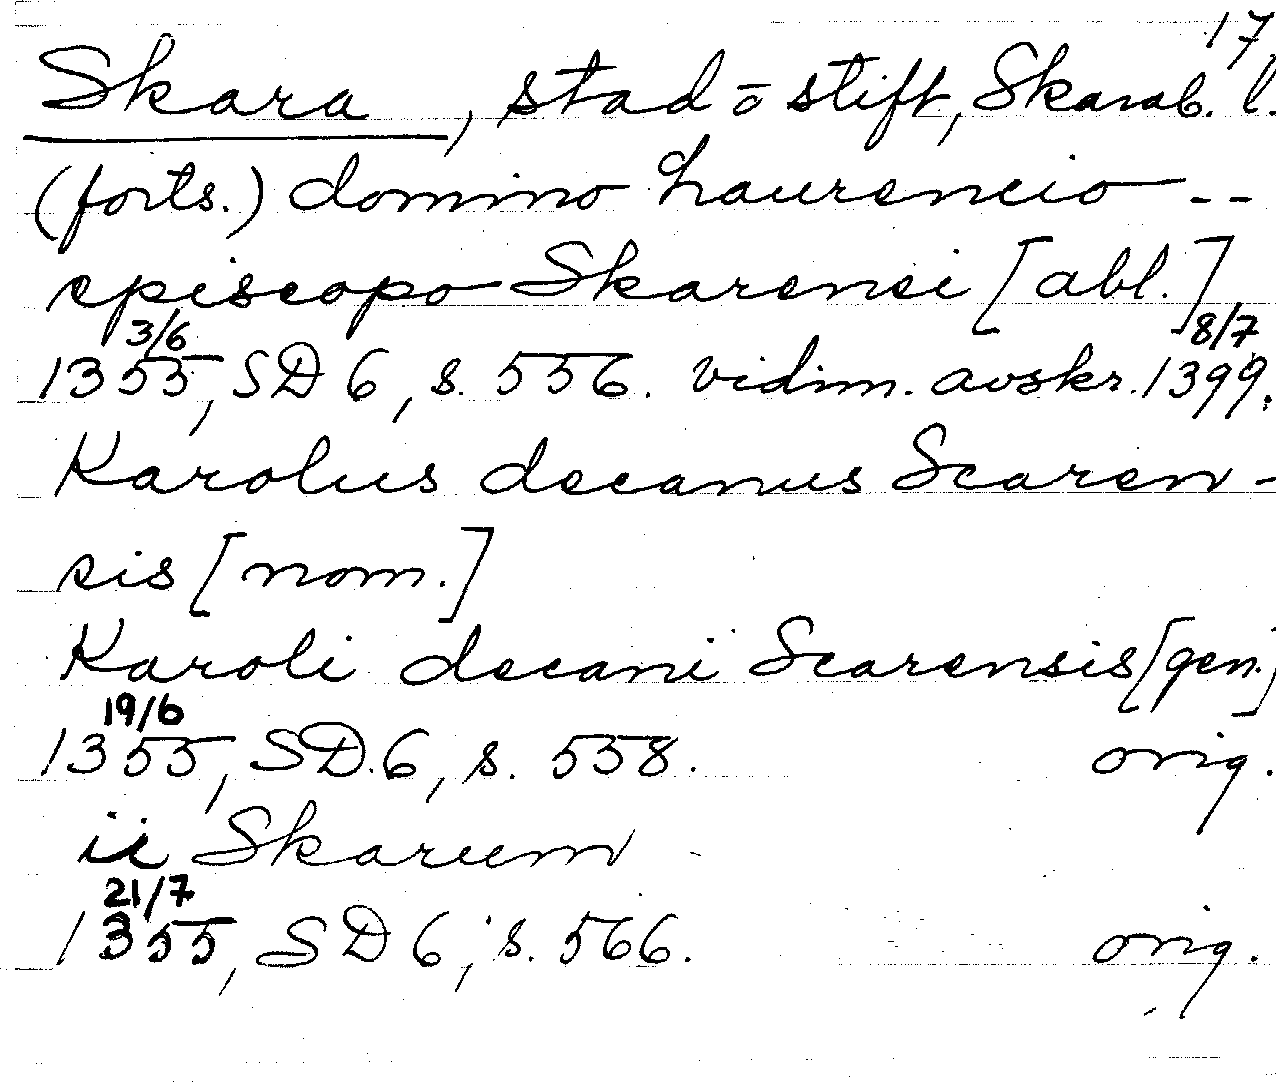 17
Skara, stad o stift, Skarab. l.
(forts.) domino Laurencio --
episcopo Skarensi [abl.]
3/6 8/7
1355, SD 6, s. 556. vidim. avskr. 1399.
Karolus decanus Scaren-
sis [nom.]
Karoli decani Scarensis [gen.]
19/6
1355, SD 6, s. 558. orig.
ii Skarum
21/7
1355, SD 6, s. 566. orig.